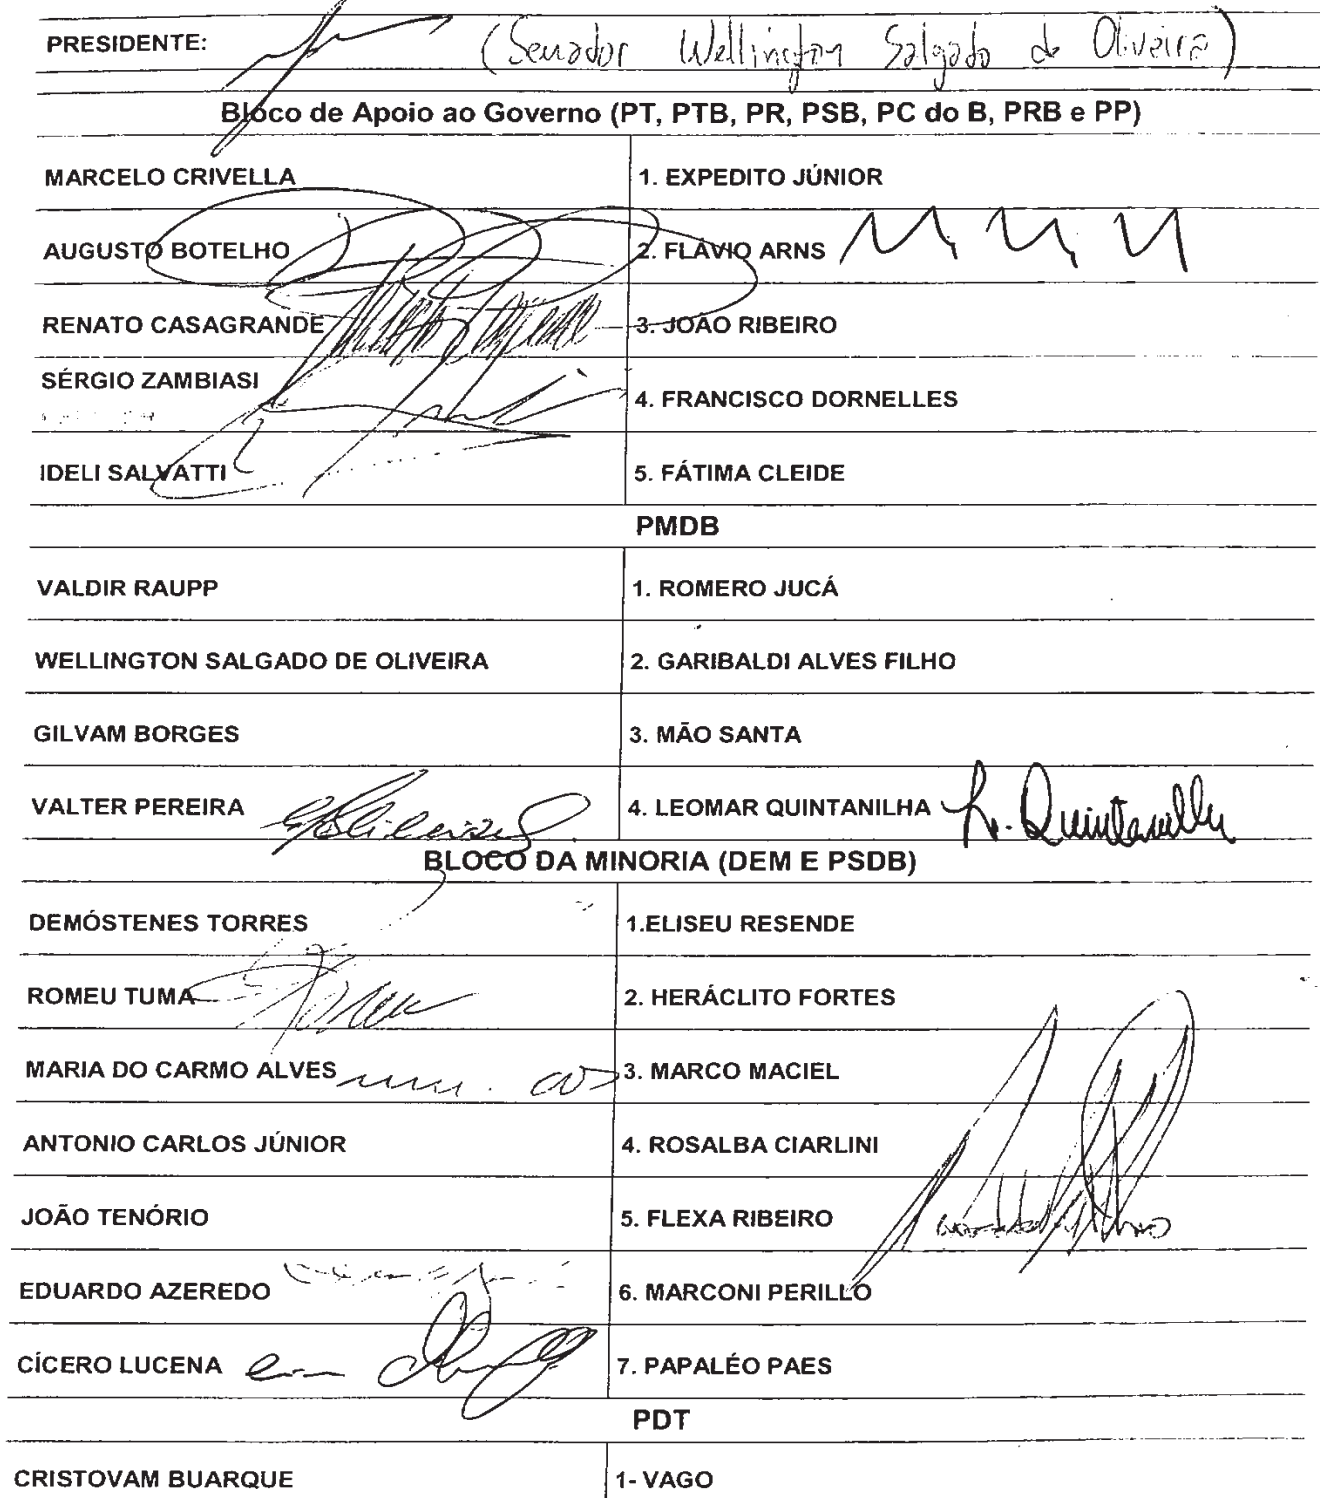 PRESIDENTE: (Senador Wellington Salgado de Oliveira)
Bloco de Apoio ao Governo (PT, PTB, PR, PSB, PC do B, PRB e PP)
MARCELO CRIVELLA 1. EXPEDITO JÚNIOR
AUGUSTO BOTELHO 2. FLÁVIO ARNS
RENATO CASAGRANDE 3. JOÃO RIBEIRO
SÉRGIO ZAMBIASI 4. FRANCISCO DORNELLES
IDELI SALVATTI 5. FÁTIMA CLEIDE
PMDB
VALDIR RAUPP 1. ROMERO JUCÁ
WELLINGTON SALGADO DE OLIVEIRA 2. GARIBALDI ALVES FILHO
GILVAM BORGES 3. MÃO SANTA
VALTER PEREIRA 4. LEOMAR QUINTANILHA L. Quintanilha
BLOCO DA MINORIA (DEM E PSDB)
DEMÓSTENES TORRES 1.ELISEU RESENDE
ROMEU TUMA 2. HERÁCLITO FORTES
MARIA DO CARMO ALVES 3. MARCO MACIEL
ANTONIO CARLOS JÚNIOR 4. ROSALBA CIARLINI
JOÃO TENÓRIO 5. FLEXA RIBEIRO
EDUARDO AZEREDO 6. MARCONI PERILLO
CÍCERO LUCENA 7. PAPALÉO PAES
PDT
CRISTOVAM BUARQUE 1- VAGO